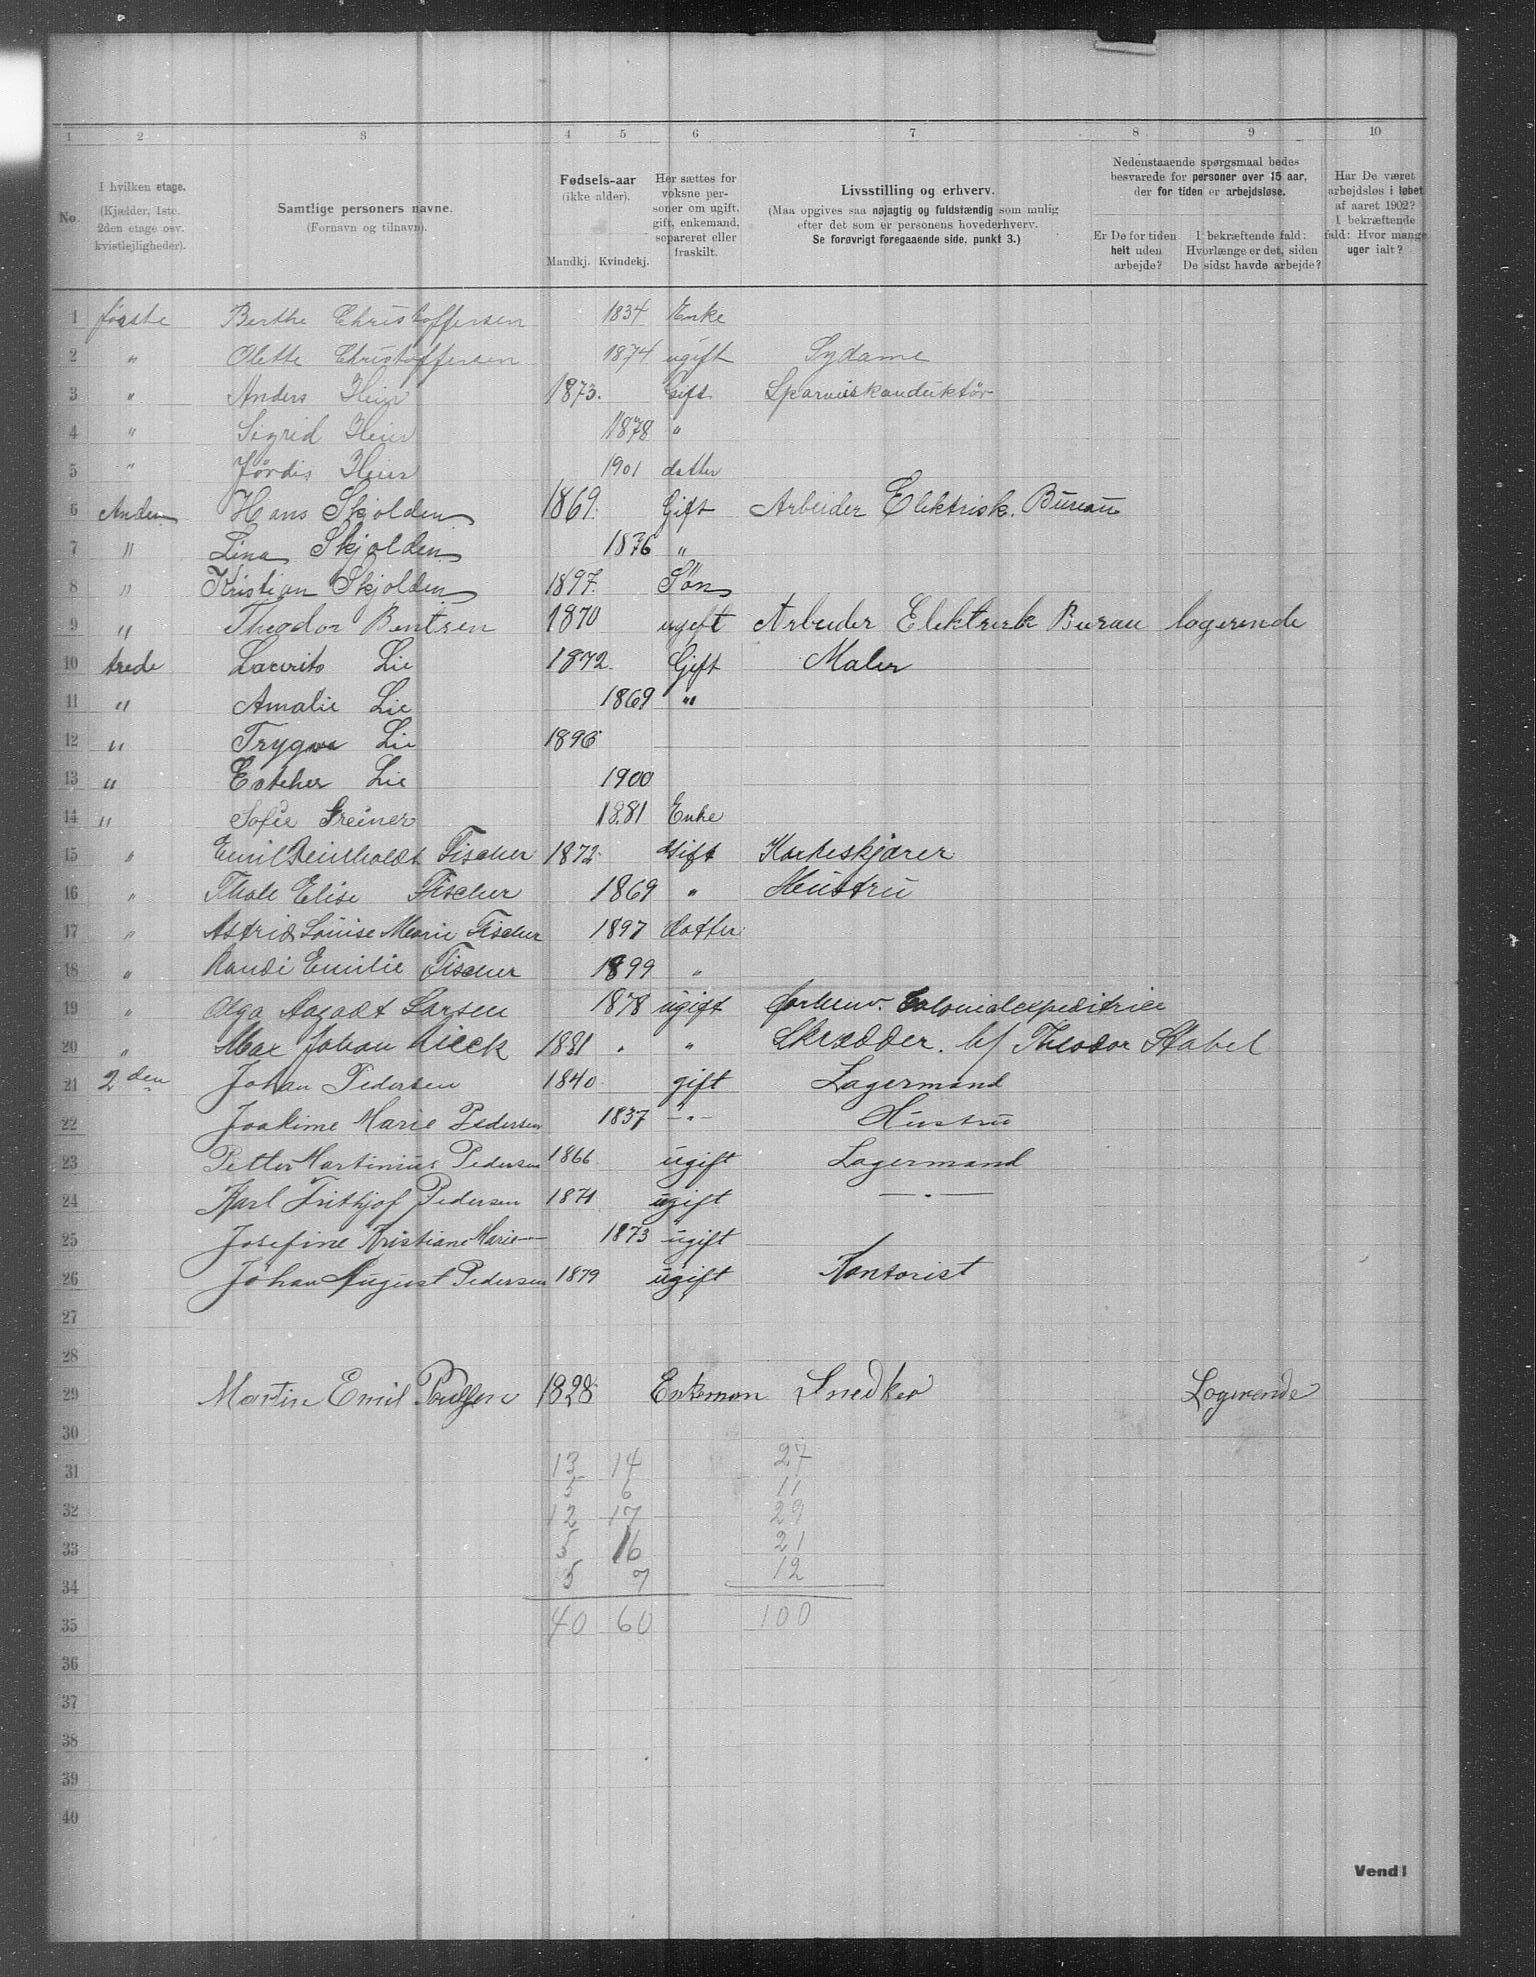 1 2 3 4 5 6 7 8 9 10
No. I hvilken etage. (Kjælder, 1ste, 2den etage osv. kvistlejligheder). Samtlige personers navne. (Fornavn og tilnavn). Fødsels-aar (ikke alder). Mandkj. Kvindekj. Her sættes for voksne personer om ugift, gift, enkemand, separeret eller fraskilt. Livsstilling og erhverv. (Maa opgives saa nøjagtig og fuldstændig som mulig efter det som er personens hovederhverv. Se forøvrigt foregaaende side, punkt 3.) Nedenstaaende spørgsmaal bedes besvarede for personer over 15 aar, der for tiden er arbejdsløse. Er De for tiden helt uden arbejde? I bekræftende fald: Hvorlænge er det, siden De sidst havde arbejde? Har De været arbejdsløs i løbet af aaret 1902? I bekræftende fald: Hvor mange uger ialt?
1 første Berthe Christoffersen 1834 Enke
2 " Olette Christoffersen 1874 ugift Sydame
3 " Anders Heier 1873. Gift Sporveiskonduktør
4 " Sigrid Heier 1878 "
5 " Jørdis Heier 1901 datter
6 Anden Hans Skjolden 1869. Gift Arbeider Elektrisk. Bureau
7 " Lina Skjolden 1876 "
8 " Kristian Skjolden 1897. Søn
9 " Theodor Bentsen 1870 ugift Arbeider Elektrisk Bureau logerende
10 trede Laurits Lie 1872. Gift Maler
11 " Amalie Lie 1869 "
12 " Trygve Lie 1896
13 " Estther Lie 1900
14 " Sofie Greiner 1881 Enke
15 " Emil Reinholdt Fischer 1872. Gift Korkeskjærer
16 " Thale Elise Fischer 1869 " Hustru
17 " Astrid Louise Marie Fischer 1897 datter
18 " Randi Emilie Fischer 1899 "
19 " Olga Aagadt Larsen 1878 ugift Colonialexpeditrice
20 " Max Johan Lieck 1881 " " Skrædder. h/ Theodor Stabel
21 2den Johan Pedersen 1840 gift Lagermand
22 Joakime Marie Pedersen 1837 -"- Hustru
23 Petter Martinius Pedersen 1866 ugift Lagermand
24 Karl Frithjof Pedersen 1871 ugift —"—
25 Josefine Kristiane Marie —"— 1873 ugift
26 Johan August Pedersen 1879 ugift Kontorist
27
28
29 Martin Emil Poulsen 1828 Enkeman Snedker Logerende
30
31 13 14 27
5 6 11
32 12 17 29
33 5 16 21
34 5 7 12
35 40 60 100
36
37
38
39
40
Vend!